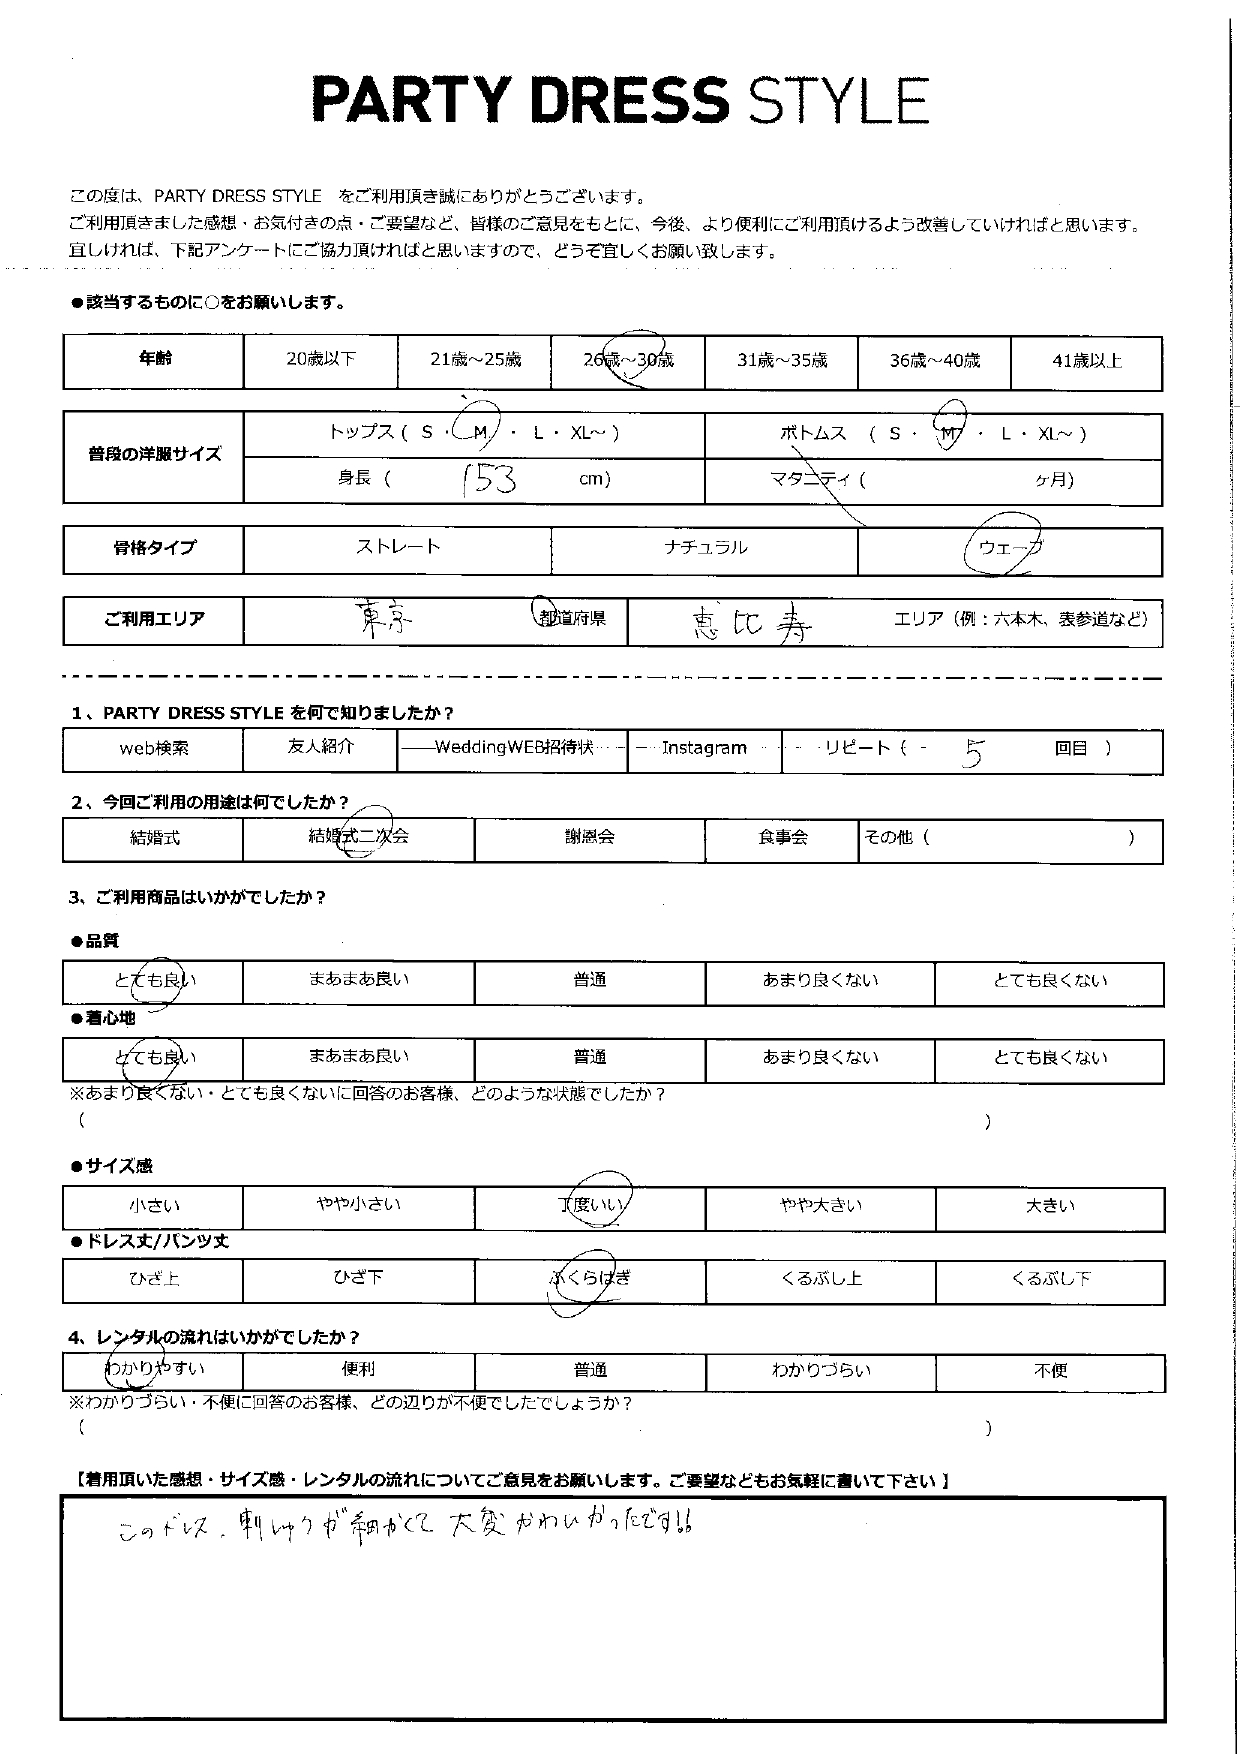 PARTY DRESS STYLE
この度は、PARTY DRESS STYLE をご利用頂き誠にありがとうございます。
ご利用頂きました感想・お気付きの点・ご要望など、皆様のご意見をもとに、今後、より便利にご利用頂けるよう改善していければと思います。
宜しければ、下記アンケートにご協力頂ければと思いますので、どうぞ宜しくお願い致します。
●該当するものに○をお願いします。
年齢 20歳以下 21歳～25歳 26歳～30歳 31歳～35歳 36歳～40歳 41歳以上
普段の洋服サイズ トップス ( S ・ M ・ L ・ XL～ ) ボトムス ( S ・ M ・ L ・ XL～ )
身長 ( 153 cm) マタニティ ( ヶ月)
骨格タイプ ストレート ナチュラル ウェーブ
ご利用エリア 東京 都道府県 恵比寿 エリア（例：六本木、表参道など）
1、PARTY DRESS STYLE を何で知りましたか？
web検索 友人紹介 WeddingWEB招待状 Instagram リピート ( 5 回目 )
2、今回ご利用の用途は何でしたか？
結婚式 結婚式二次会 謝恩会 食事会 その他 ( )
3、ご利用商品はいかがでしたか？
●品質
とても良い まあまあ良い 普通 あまり良くない とても良くない
●着心地
とても良い まあまあ良い 普通 あまり良くない とても良くない
※あまり良くない・とても良くないに回答のお客様、どのような状態でしたか？
( )
●サイズ感
小さい やや小さい 丁度いい やや大きい 大きい
●ドレス丈/パンツ丈
ひざ上 ひざ下 ふくらはぎ くるぶし上 くるぶし下
4、レンタルの流れはいかがでしたか？
わかりやすい 便利 普通 わかりづらい 不便
※わかりづらい・不便に回答のお客様、どの辺りが不便でしたでしょうか？
( )
【着用頂いた感想・サイズ感・レンタルの流れについてご意見をお願いします。ご要望などもお気軽に書いて下さい】
このドレス、刺しゅうが細かくて大変かわいかったです!!